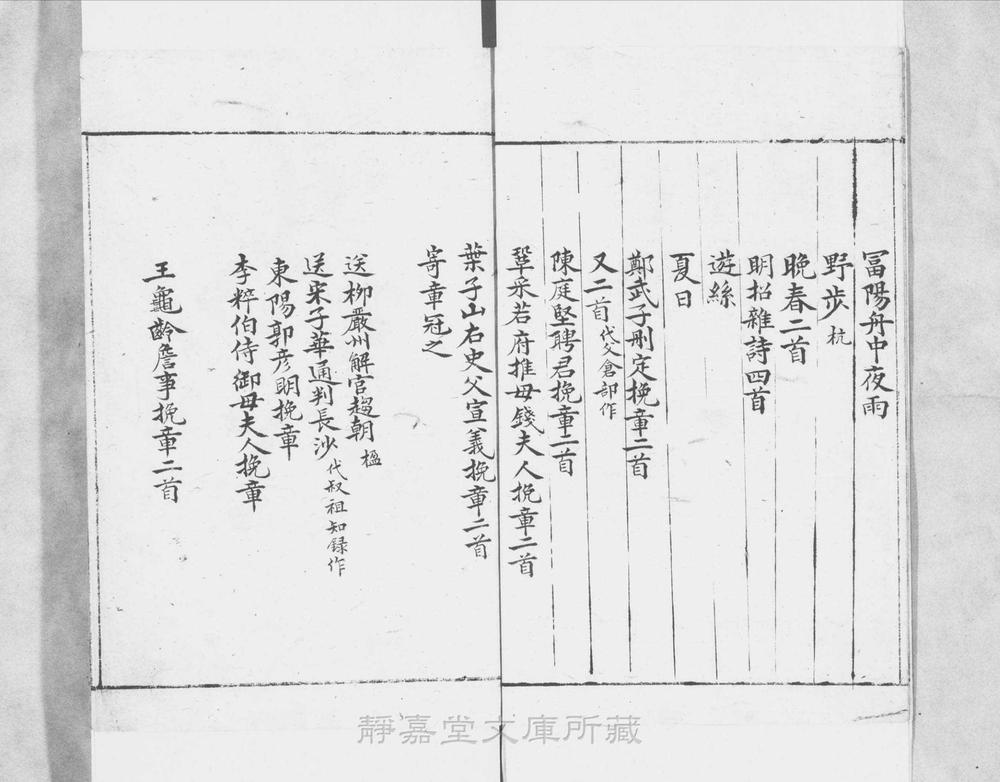 冨陽舟中夜雨
野步杭
晚春二首
明招雜詩四首
遊絲
夏日
鄭武子刪定挽章二首
又二首代父倉部作
陳庭堅聘君挽章二首
鞏采若府推母錢夫人挽章二首
葉子山右史父宣義挽章二首
寄章冠之
送柳嚴州解官趨朝楹
送宋子華通判長沙代叔祖知録作
東陽郭彥明挽章
李粹伯侍御母夫人挽章
王龜齡詹事挽章二首
靜嘉堂文庫所藏